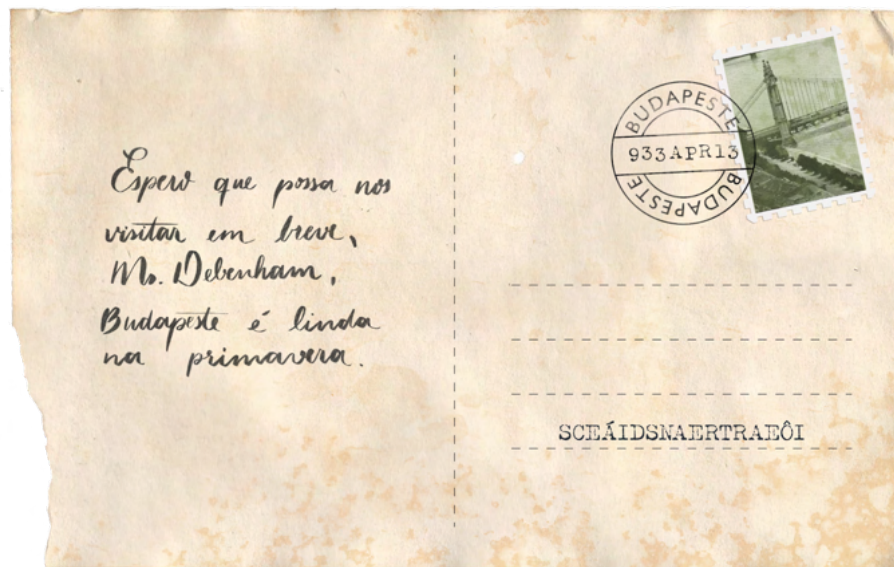 Espero que possa nos
visitar em breve,
Mr. Debenham,
Budapeste é linda
na primavera.
BUDAPESTE
933APR13
BUDAPESTE
SCEÁIDSNAERTRAEÔI